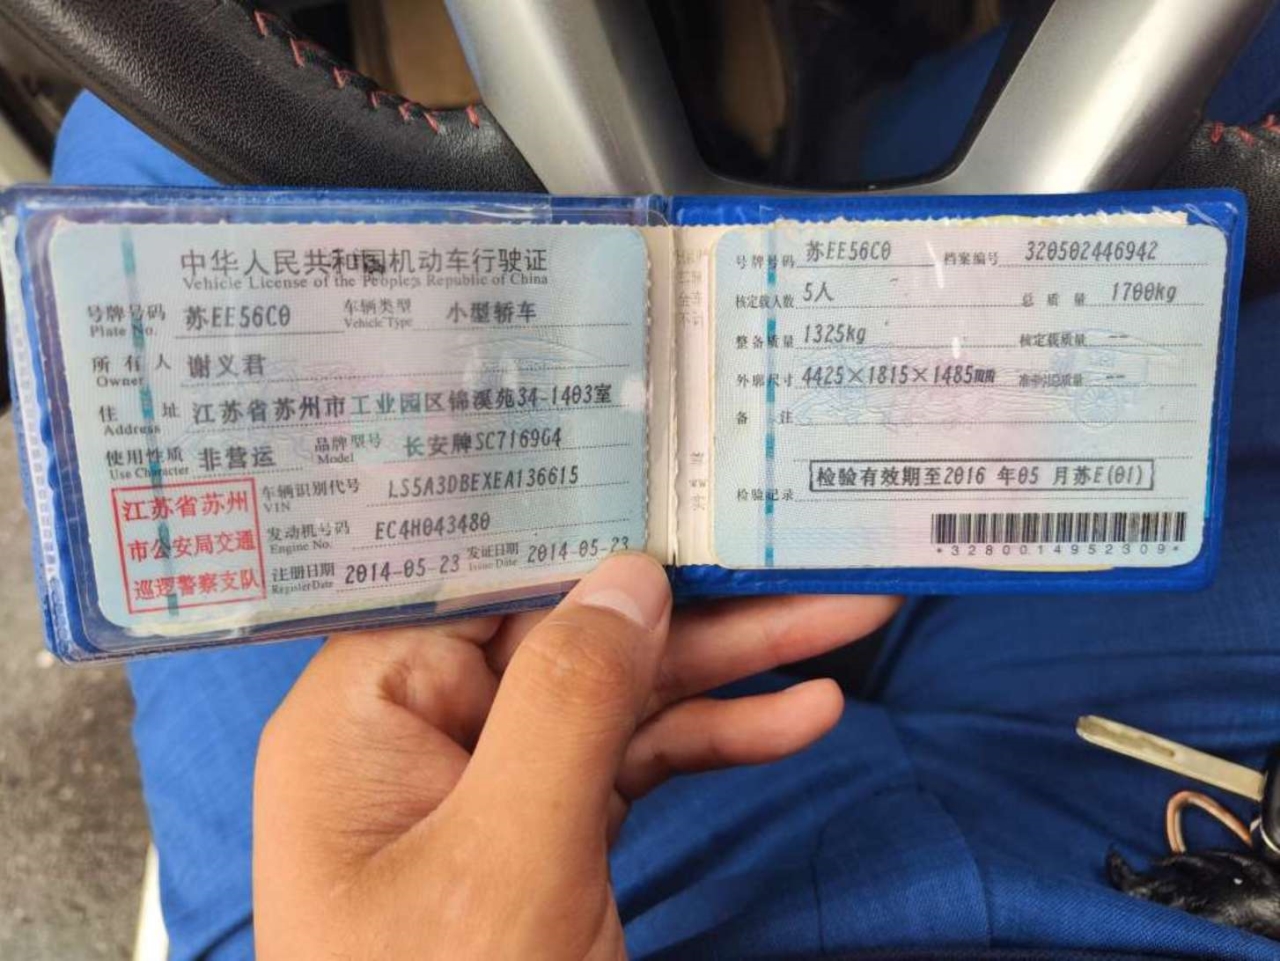 中华人民共和国机动车行驶证
Vehicle License of the People's Republic of China
号牌号码 苏EE56C0 车辆类型 小型轿车
Plate No. Vehicle Type
所有人 谢义君
Owner
住址 江苏省苏州市工业园区锦溪苑34-1403室
Address
使用性质 非营运 品牌型号 长安牌SC7169G4
Use Character Model
江苏省苏州
市公安局交通
巡逻警察支队
车辆识别代号 LS5A3DBEXEA136615
VIN
发动机号码 EC4H043480
Engine No.
注册日期 2014-05-23 发证日期 2014-05-23
Register Date Issue Date
号牌号码 苏EE56C0 档案编号 320502446942
核定载人数 5人 总质量 1700kg
整备质量 1325kg 核定载质量 --
外廓尺寸 4425×1815×1485mm 准牵引总质量 --
备注
检验记录 检验有效期至2016 年05 月苏E(01)
*3280014952309*